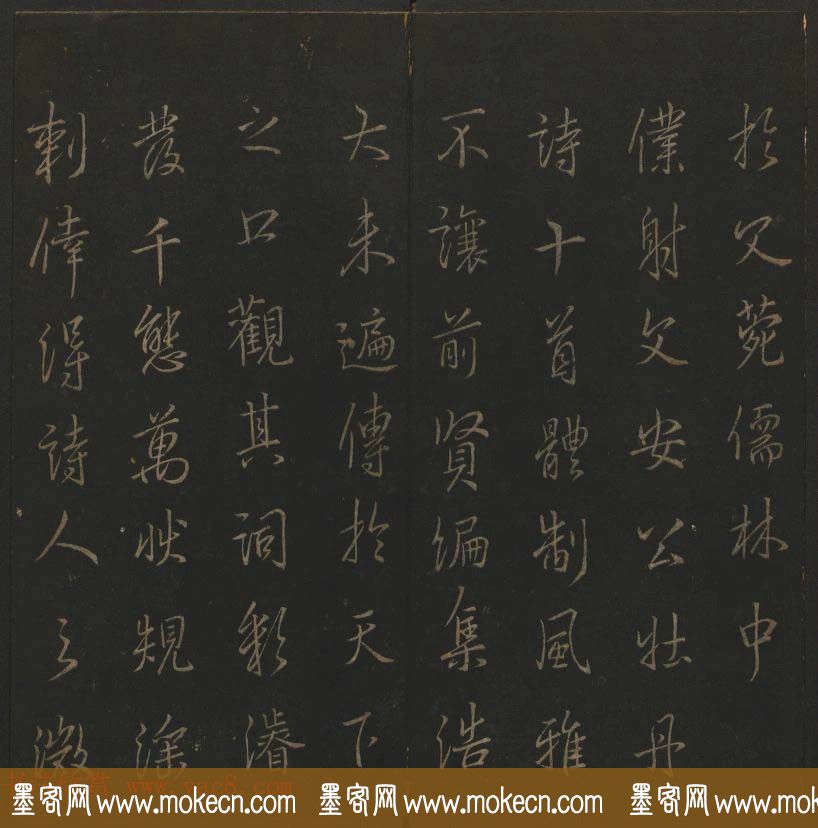 於父菀儒林中
僕射文安公壯丹
詩十首體制風雅
不讓前賢編集浩
大未遍傳於天下
之口觀其詞彩濬
發千態萬狀規深
刺俾得詩人之微
墨客网 www.mokecn.com 墨客网 www.mokecn.com 墨客网 www.mokecn.com